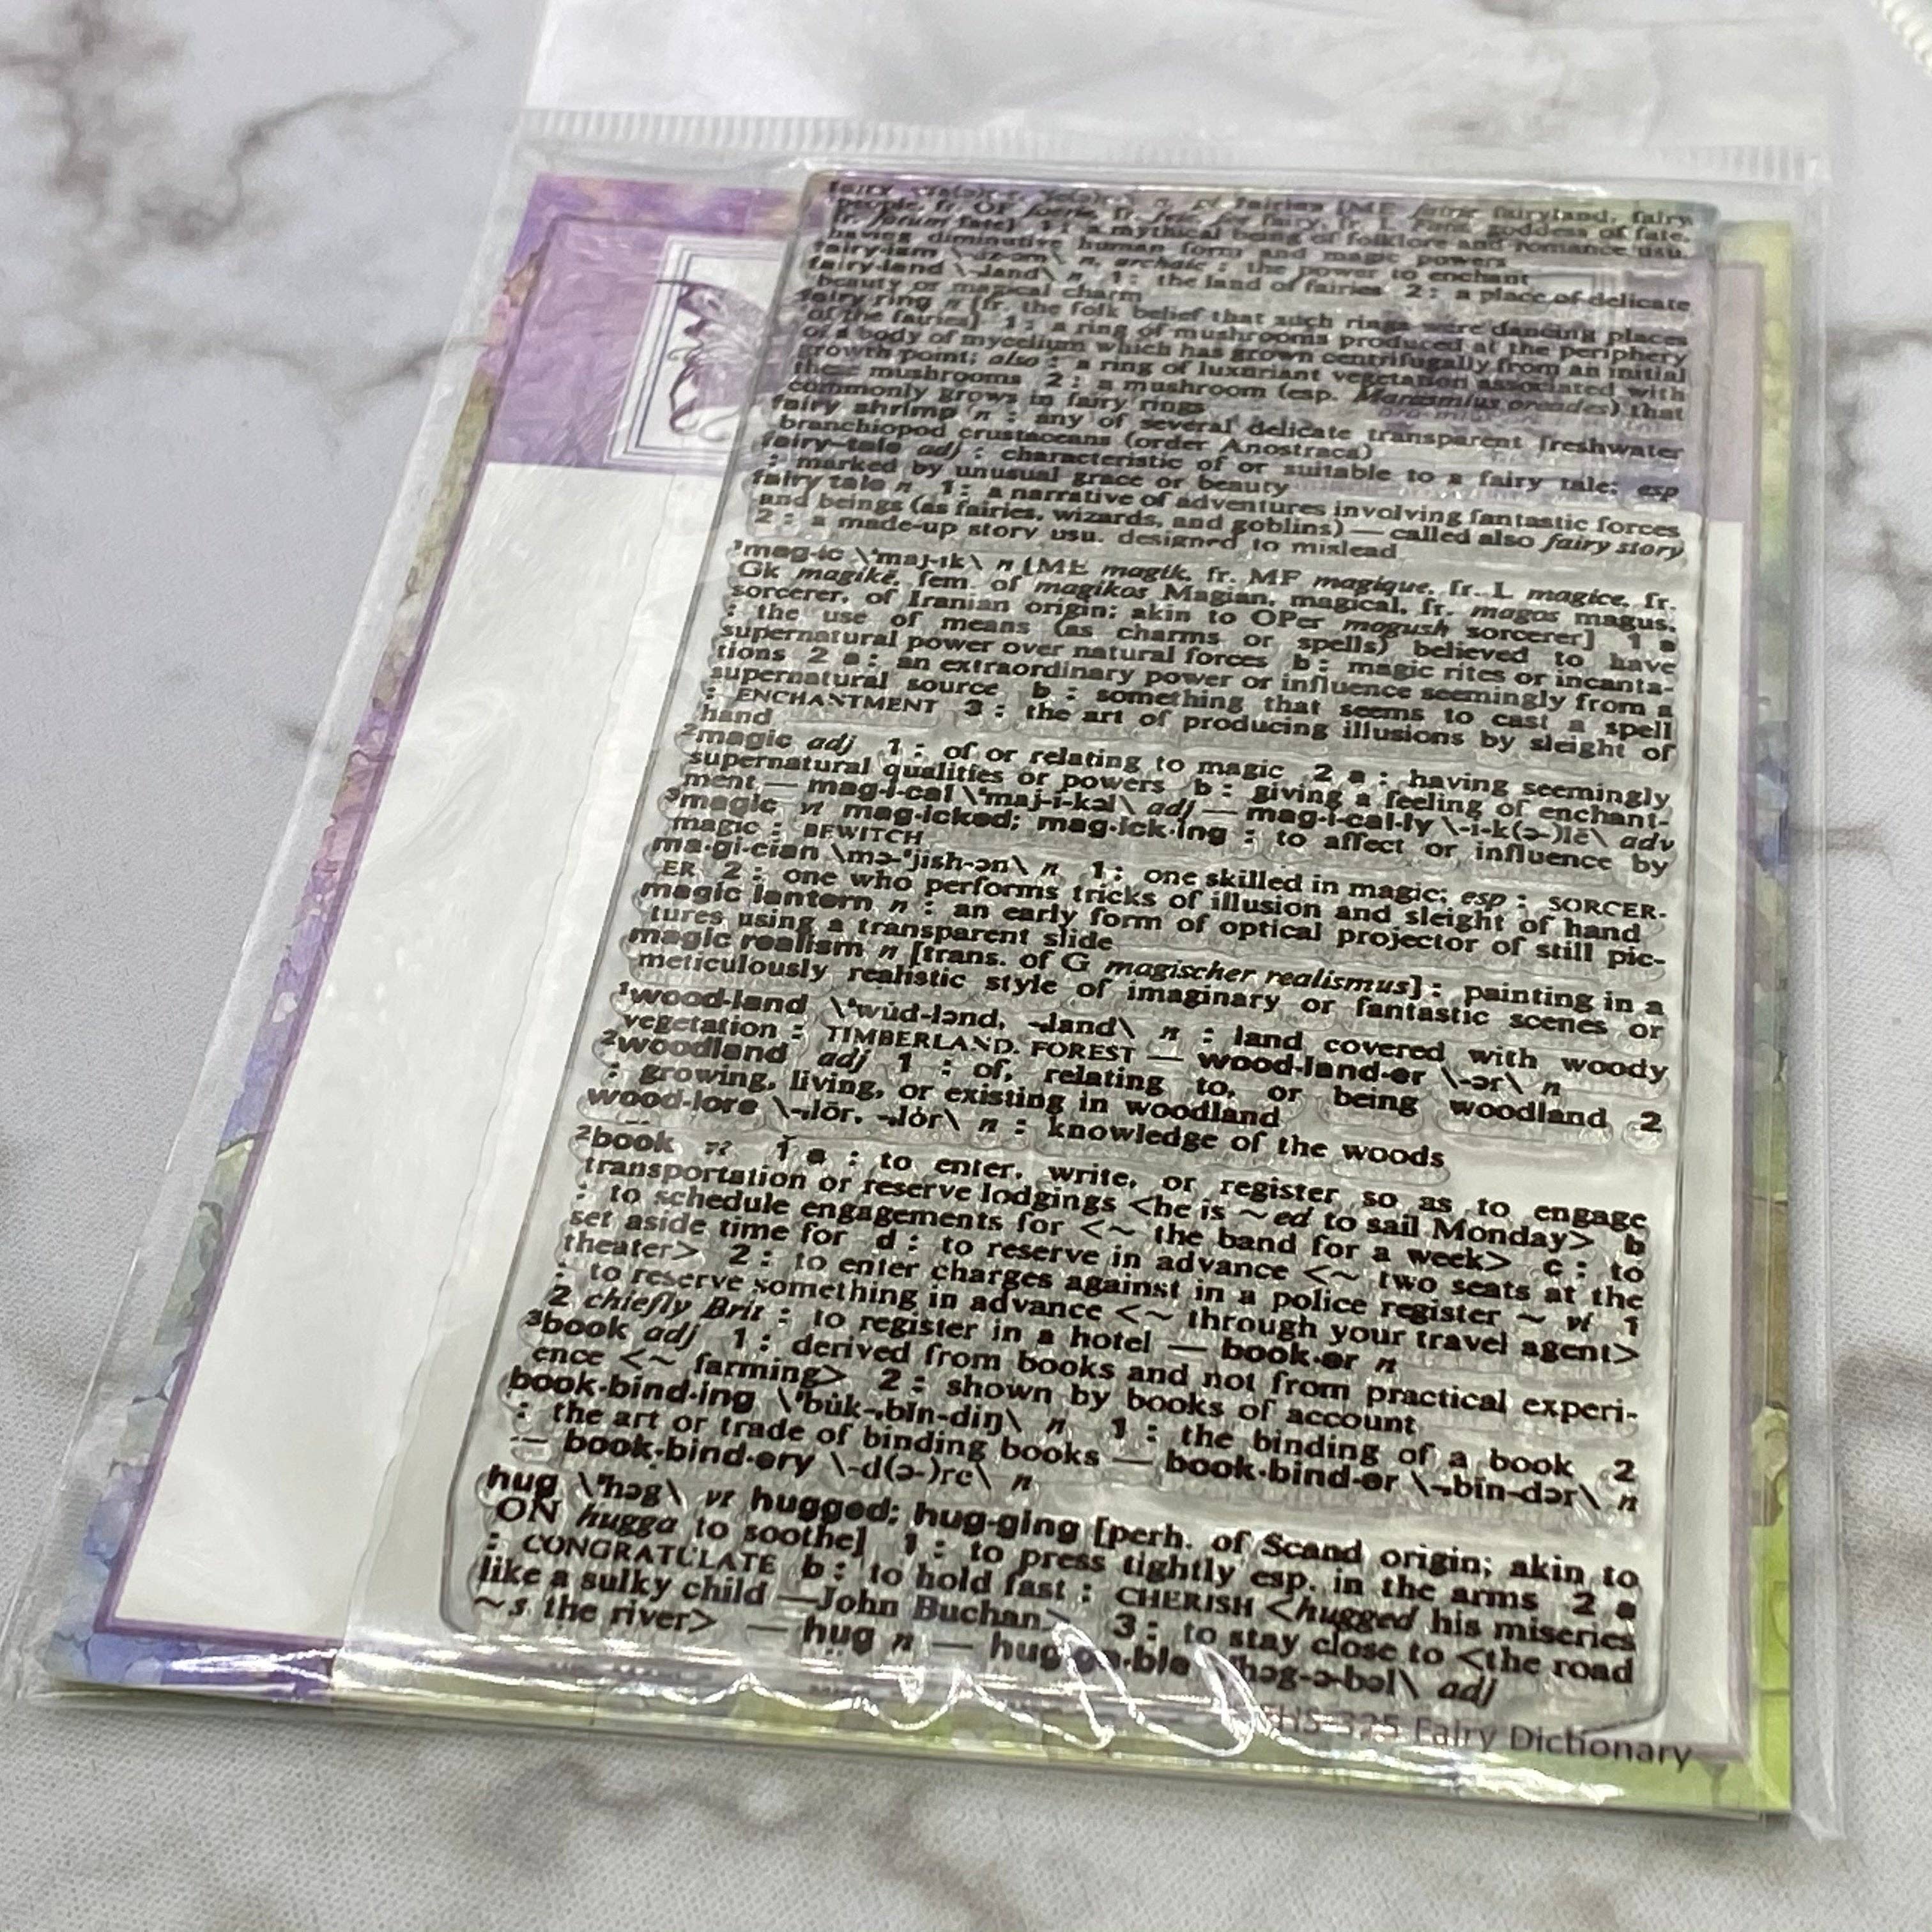 fairy n, pl fairies [ME fairie fairyland, fairy
people, fr. OF faerie, fr. feie, fee fairy, fr. L Fata, goddess of fate,
fr. fatum fate] 1 : a mythical being of folklore and romance usu.
having diminutive human form and magic powers
fairy·ism \-,iz-əm\ n, archaic : the power to enchant
fairy·land \-,land\ n 1 : the land of fairies 2 : a place of delicate
beauty or magical charm
fairy ring n [fr. the folk belief that such rings were dancing places
of the fairies] 1 : a ring of mushrooms produced at the periphery
of a body of mycelium which has grown centrifugally from an initial
growth point; also : a ring of luxuriant vegetation associated with
these mushrooms 2 : a mushroom (esp. Marasmius oreades) that
commonly grows in fairy rings
fairy shrimp n : any of several delicate transparent freshwater
branchiopod crustaceans (order Anostraca)
fairy-tale adj : characteristic of or suitable to a fairy tale; esp
: marked by unusual grace or beauty
fairy tale n 1 : a narrative of adventures involving fantastic forces
and beings (as fairies, wizards, and goblins) — called also fairy story
2 : a made-up story usu. designed to mislead
¹mag·ic \'maj-ik\ n [ME magik, fr. MF magique, fr. L magice, fr.
Gk magikē, fem. of magikos Magian, magical, fr. magos magus,
sorcerer, of Iranian origin; akin to OPer mogush sorcerer] 1 a
: the use of means (as charms or spells) believed to have
supernatural power over natural forces b : magic rites or incanta-
tions 2 a : an extraordinary power or influence seemingly from a
supernatural source b : something that seems to cast a spell
: ENCHANTMENT 3 : the art of producing illusions by sleight of
hand
²magic adj 1 : of or relating to magic 2 a : having seemingly
supernatural qualities or powers b : giving a feeling of enchant-
ment — mag·i·cal \'maj-i-kəl\ adj — mag·i·cal·ly \-i-k(ə-)lē\ adv
³magic vt mag·icked; mag·ick·ing : to affect or influence by
magic : BEWITCH
ma·gi·cian \mə-'jish-ən\ n 1 : one skilled in magic; esp : SORCER-
ER 2 : one who performs tricks of illusion and sleight of hand
magic lantern n : an early form of optical projector of still pic-
tures using a transparent slide
magic realism n [trans. of G magischer realismus] : painting in a
meticulously realistic style of imaginary or fantastic scenes or
¹wood·land \'wu̇d-lənd, -,land\ n : land covered with woody
vegetation : TIMBERLAND, FOREST — wood·land·er \-ər\ n
²woodland adj 1 : of, relating to, or being woodland 2
: growing, living, or existing in woodland
wood·lore \-,lōr, -,lȯr\ n : knowledge of the woods
²book vt 1 a : to enter, write, or register so as to engage
transportation or reserve lodgings <he is ~ed to sail Monday> b
: to schedule engagements for <~ the band for a week> c : to
set aside time for d : to reserve in advance <~ two seats at the
theater> 2 : to enter charges against in a police register ~ vi 1
: to reserve something in advance <~ through your travel agent>
2 chiefly Brit : to register in a hotel — book·er n
³book adj 1 : derived from books and not from practical experi-
ence <~ farming> 2 : shown by books of account
book·bind·ing \'bu̇k-,bīn-diŋ\ n 1 : the binding of a book 2
: the art or trade of binding books — book·bind·er \-,bīn-dər\ n
— book·bind·ery \-d(ə-)rē\ n
hug \'həg\ vt hugged; hug·ging [perh. of Scand origin; akin to
ON hugga to soothe] 1 : to press tightly esp. in the arms 2 a
: CONGRATULATE b : to hold fast : CHERISH <hugged his miseries
like a sulky child —John Buchan> 3 : to stay close to <the road
~s the river> — hug n — hug·ga·ble \'həg-ə-bəl\ adj
Fairy Dictionary